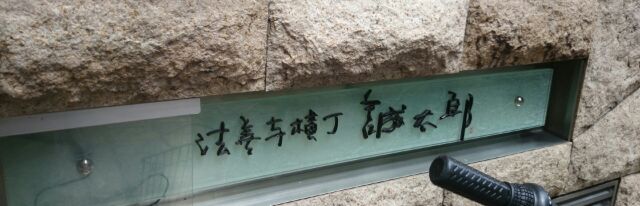 法善寺横丁 誠太郎